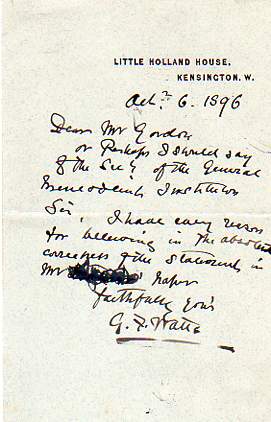 LITTLE HOLLAND HOUSE,
KENSINGTON, W.
Oct. 6. 1896
Dear Mr Gordon
or Perhaps I should say
of the Secy of the General
Benevolent Institution
Sir, I have every reason
for believing in the absolute
correctness of the statements in
Mr paper
faithfully yours
G. F. Watts